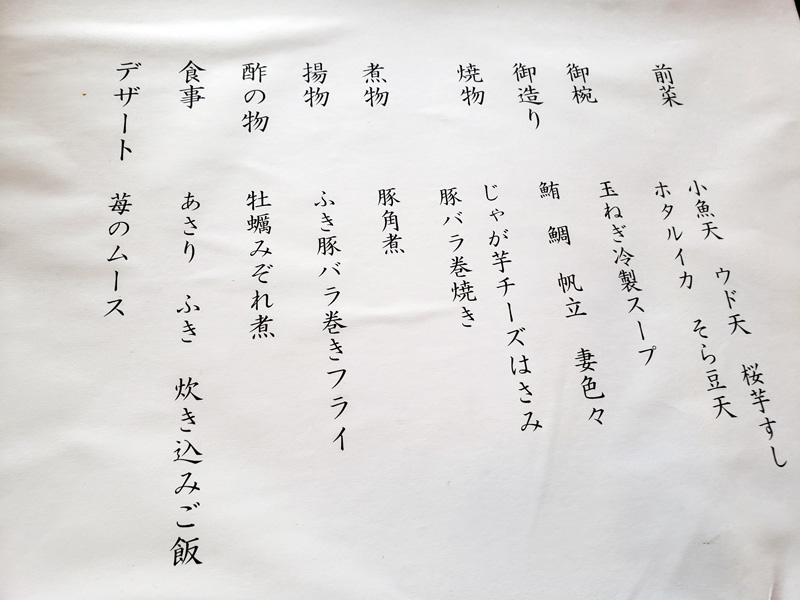 前菜　小魚天　ウド天　桜芋すし
ホタルイカ　そら豆天
御椀　玉ねぎ冷製スープ
御造り　鮪　鯛　帆立　妻色々
焼物　じゃが芋チーズはさみ
豚バラ巻焼き
煮物　豚角煮
揚物　ふき豚バラ巻きフライ
酢の物　牡蠣みぞれ煮
食事　あさり　ふき　炊き込みご飯
デザート　苺のムース